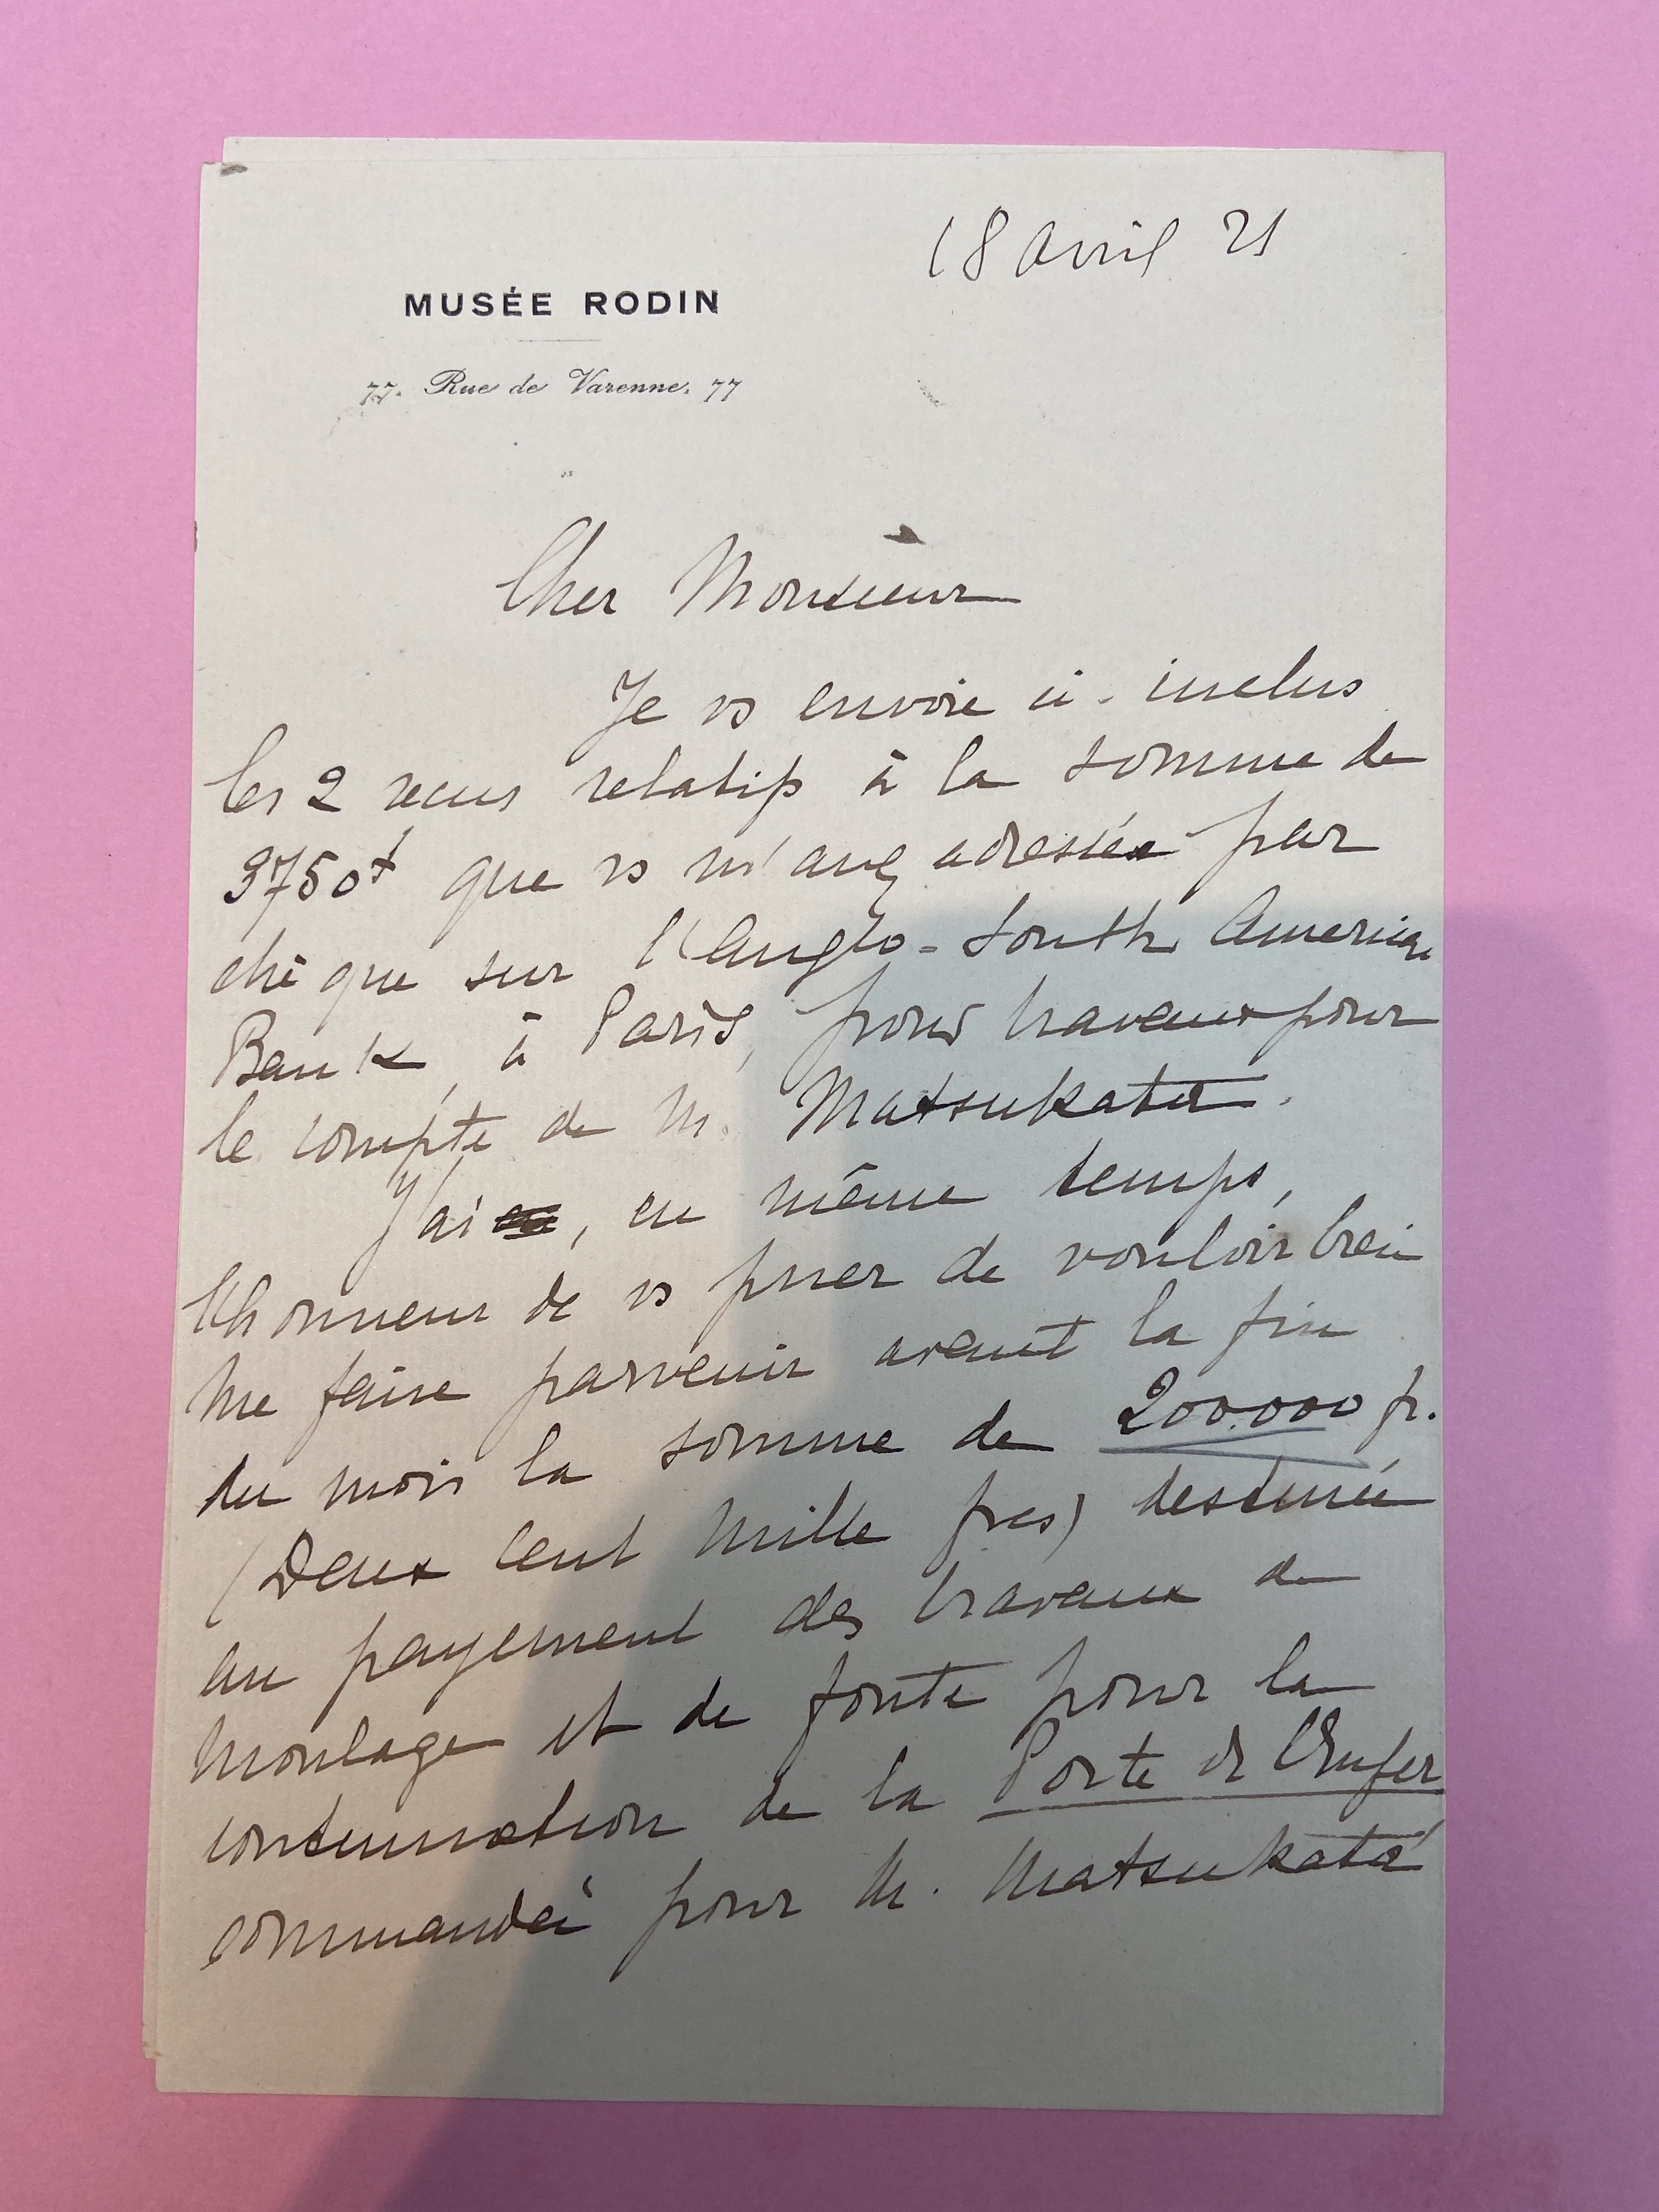 18 avril 21
MUSÉE RODIN
77. Rue de Varenne. 77
Cher Monsieur
Je vs envoie ci-inclus
les 2 recus relatifs à la somme de
9750f que vs m'avez adressée par
chèque sur l'Anglo-South American
Bank, à Paris, pour travaux pour
le compte de M. Matsukata.
J'ai, en même temps,
l'honneur de vs prier de vouloir bien
me faire parvenir avant la fin
du mois la somme de 200.000 fr.
(Deux cent mille frcs) destinée
au payement des travaux de
moulage et de fonte pour la
continuation de la Porte de l'Enfer
commandée pour M. Matsukata